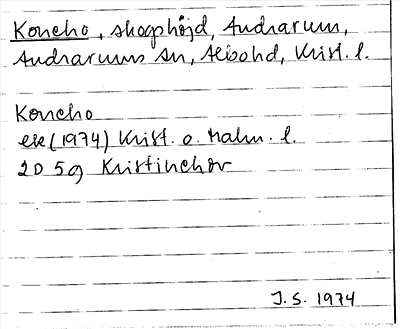 Koneho, skogshöjd, Andrarum,
Andrarums sn, Albo hd, Krist. l.
Koneho
ek (1974) Krist. o. Malm. l.
2D 5g Kristinehov
J.S. 1974